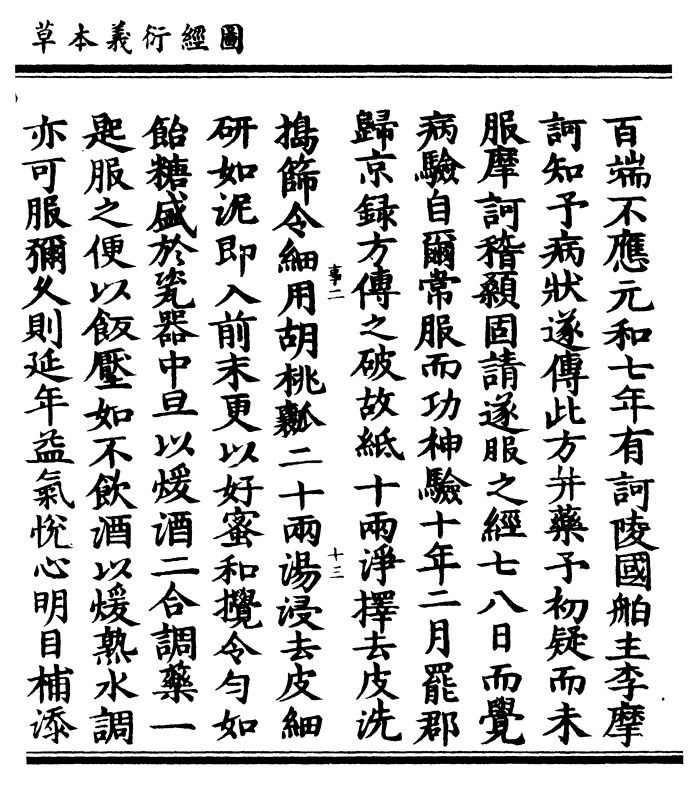 圖經衍義本草
百端不應元和七年有訶陵國舶主李摩
訶知予病狀遂傳此方并藥予初疑而未
服摩訶稽顙固請遂服之經七八日而覺
病驗自爾常服而功神驗十年二月罷郡
歸京録方傳之破故紙十兩淨擇去皮洗
事二
十三
搗篩令細用胡桃瓤二十兩湯浸去皮細
研如泥即入前末更以好蜜和攪令勻如
飴糖盛於瓷器中旦以煖酒二合調藥一
匙服之便以飯壓如不飲酒以煖熟水調
亦可服彌久則延年益氣悅心明目補添